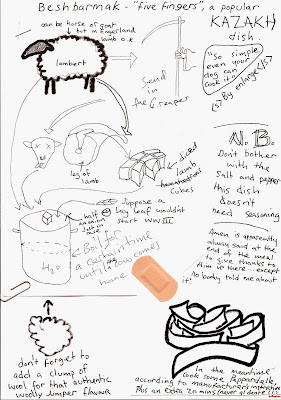 Beshbarmak - "five fingers", a popular
KAZAKH
dish.
can be horse or goat
but in Engerland
lamb o.k.
lambert
Send
in
the G.reaper
"So simple
even your
dog can
cook it"
(S? By enlarge (S?
leg of
lamb
lamb
cubes
N.B.
Don't bother
with the
Salt and pepper
this dish
doesn't
need seasoning
half
an onion
Suppose a
bay leaf wouldn't
start WW III
H2O
Boil for
a certain time
until cow comes
home
Amen is apparently
always said at the
end of the meal
to give thanks to
Him up there... except
Nobody told me about
it!
don't forget to
add a clump of
wool for that authentic
woolly jumper flavour
In the meantime
cook some Pappardelle,
according to manufacturers instructions
Plus an extra 20 mins (never al dente (S!)